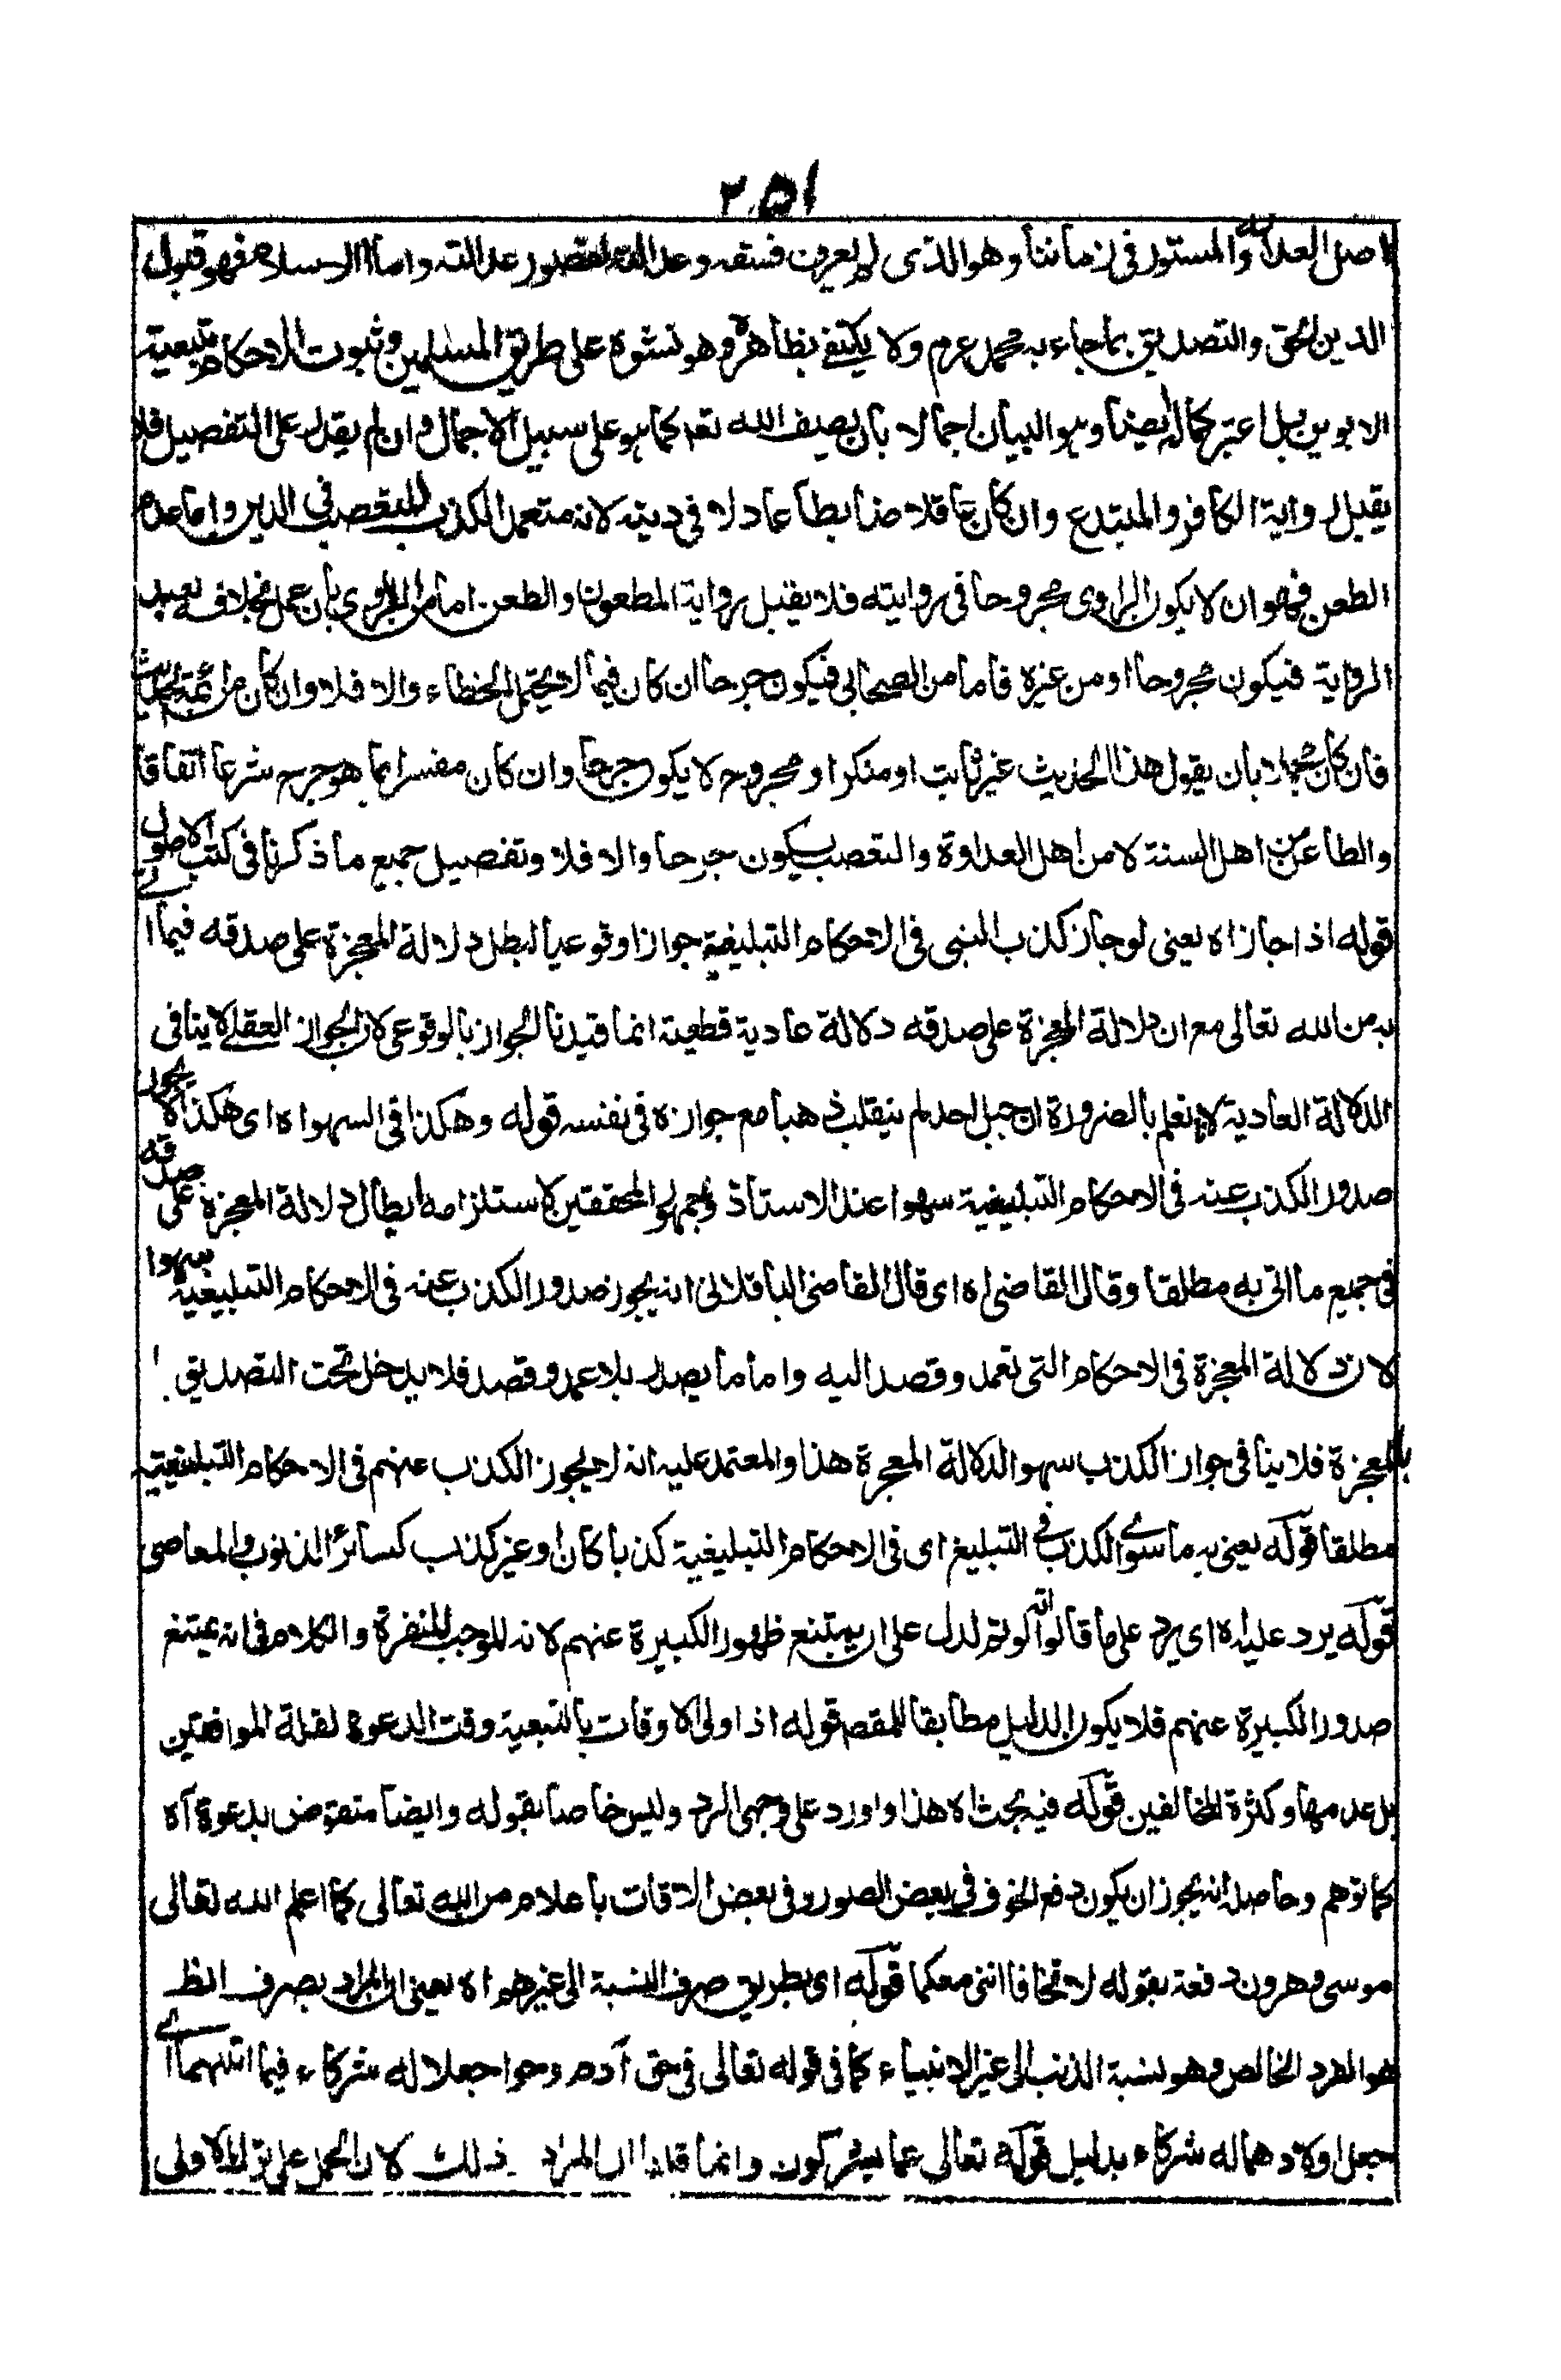 ٢٥١
اصل العدالة والمستور فى زماننا وهو الذى لم يعرف فسقه وعدالته لقصور عدالته واما الاسلام فهو قبول
الدين الحق والتصديق بما جاء به محمد عرم ولا يكتفى بظاهره وهو نشوه على طريق المسلمين وثبوت الاحكام بتبعية
الابوين بل اعتبر كماله ايضا وهو البيان اجمالا بان يصف الله تعه كما هو على سبيل الاجمال وان لم يقدر على التفصيل فلا
يقبل رواية الكافر والمبتدع وان كان عاقلا ضابطا عادلا فى دينه لانه متعمد الكذب للتعصب فى الدين واما عدم
الطعن فهو ان لا يكون الراوى مجروحا فى روايته فلا يقبل رواية المطعون والطعن اما من الراوى بان عمل بخلافه بعد
الرواية فيكون مجروحا او من غيره فاما من الصحابى فيكون جرحا ان كان فيما لا يحتمل الخطاء والا فلا وان كان من ائمة الحديث
فان كان مجملا بان يقول هذا الحديث غير ثابت او منكر او مجروح لا يكون جرحا وان كان مفسرا بما هو جرح شرعا اتفاقا
والطاعن من اهل السنة لا من اهل العداوة والتعصب يكون جرحا والا فلا وتفصيل جميع ما ذكرنا فى كتب الاصول
قوله اذا جاز اه يعنى لو جاز كذب النبى فى الاحكام التبليغية جوازا وقوعيا لبطل دلالة المعجزة على صدقه فيما اتى
به من الله تعالى مع ان دلالة المعجزة على صدقه دلالة عادية قطعية انما قيدنا الجواز بالوقوعى لان الجواز العقلى لا ينافى
الدلالة العادية لانا نعلم بالضرورة ان جبل احد لم ينقلب ذهبا مع جوازه فى نفسه قوله وهكذا فى السهو اه اى هكذا لا يجوز
صدور الكذب عنه فى الاحكام التبليغية سهوا عند الاستاذ وجمهور المحققين لاستلزامه ابطال دلالة المعجزة على صدقه
فى جميع ما اتى به مطلقا وقال القاضى اه اى قال القاضى الباقلانى انه يجوز صدور الكذب عنه فى الاحكام التبليغية سهوا
لان دلالة المعجزة فى الاحكام التى تعمد وقصد اليه واما ما يصدر بلا عمد وقصد فلا يدخل تحت التصديق
بالمعجزة فلا ينافى جواز الكذب سهوا لدلالة المعجزة هذا والمعتمد عليه انه لا يجوز الكذب عنهم فى الاحكام التبليغية
مطلقا قوله يعنى به ما سوى الكذب فى التبليغ اى فى الاحكام التبليغية كذبا كان او غير كذب كسائر الذنوب والمعاصى
قوله يرد عليه اه اى يرد على ما قالوا انه لو تم لدل على ان يمتنع ظهور الكبيرة عنهم لانه للموجب للنفرة والكلام فى انه يمتنع
صدور الكبيرة عنهم فلا يكون الدليل مطابقا للمقصد قوله اذ اولى الاوقات بالتبعية وقت الدعوة لقلة الموافقين
بل عدمها وكثرة المخالفين قوله فيه بحث اه هذا وارد على وجهى الرد وليس خاصا بقوله وايضا منقوض بدعوة آه
كما توهم وحاصله انه يجوز ان يكون دفع الخوف فى بعض الصور وفى بعض الاوقات باعلام من الله تعالى كما اعلم الله تعالى
موسى وهرون دفعة بقوله لا تخافا اننى معكما قوله اى بطريق صرف النسبة الى غيرهم اه يعنى ان المراد بصرف الظ
هو الفرد الخالص وهو نسبة الذنب الى غير الانبياء كما فى قوله تعالى فى حق آدم وحوا جعلا له شركاء فيما اتٰهما اى
جعل اولادهما له شركاء بدليل قوله تعالى عما يشركون وانما قلنا ان المراد ذلك لان الحمل على ترك الاولى